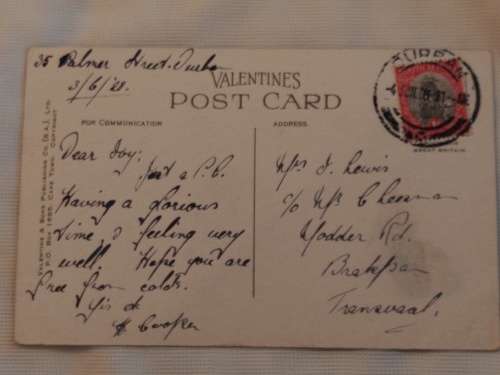 35 Palmer Street. Durban
3/6/28.
VALENTINES
POST CARD
FOR COMMUNICATION
ADDRESS.
DURBAN
GREAT BRITAIN
VALENTINE & SONS PUBLISHING CO. (S.A.), LTD.
P.O. BOX 1685, CAPE TOWN. COPYRIGHT
Dear Ivy:
Just a P.C.
Having a Glorious
time & feeling very
well. Hope you are
free from colds.
Cooper
Mrs J. Lewis
c/o Mrs Cheesman
Modder Rd.
Brakpan
Transvaal.